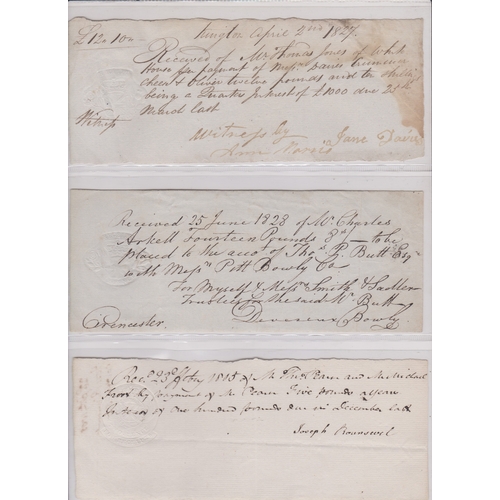 £12..10..
Kington April 2nd 1827.
Received of Mr Thomas Jones of White
House for payment of Messrs Davies
Cheese & Oliver twelve pounds and ten shillings
being a Quarter Interest of £1000 due 25th
March last
Witness
Witness by Jane Davies
Ann
Received 25 June 1828 of Mr Charles
Arkell Fourteen Pounds 8d — to be
placed to the accot of Thos P. Butt Esqr
with Messrs Pitt Bowly Co
For Myself & Messrs Smith & Sadler
Trustees for the said Mr Butt
Cirencester. Devereux Bowly
Recd 23d of 1815 of Mr Pearn and Mr Michael
Frost by payment of Mr Pearn Five pounds a year
Interest of one hundred pounds due in December last
Joseph Rounsevel